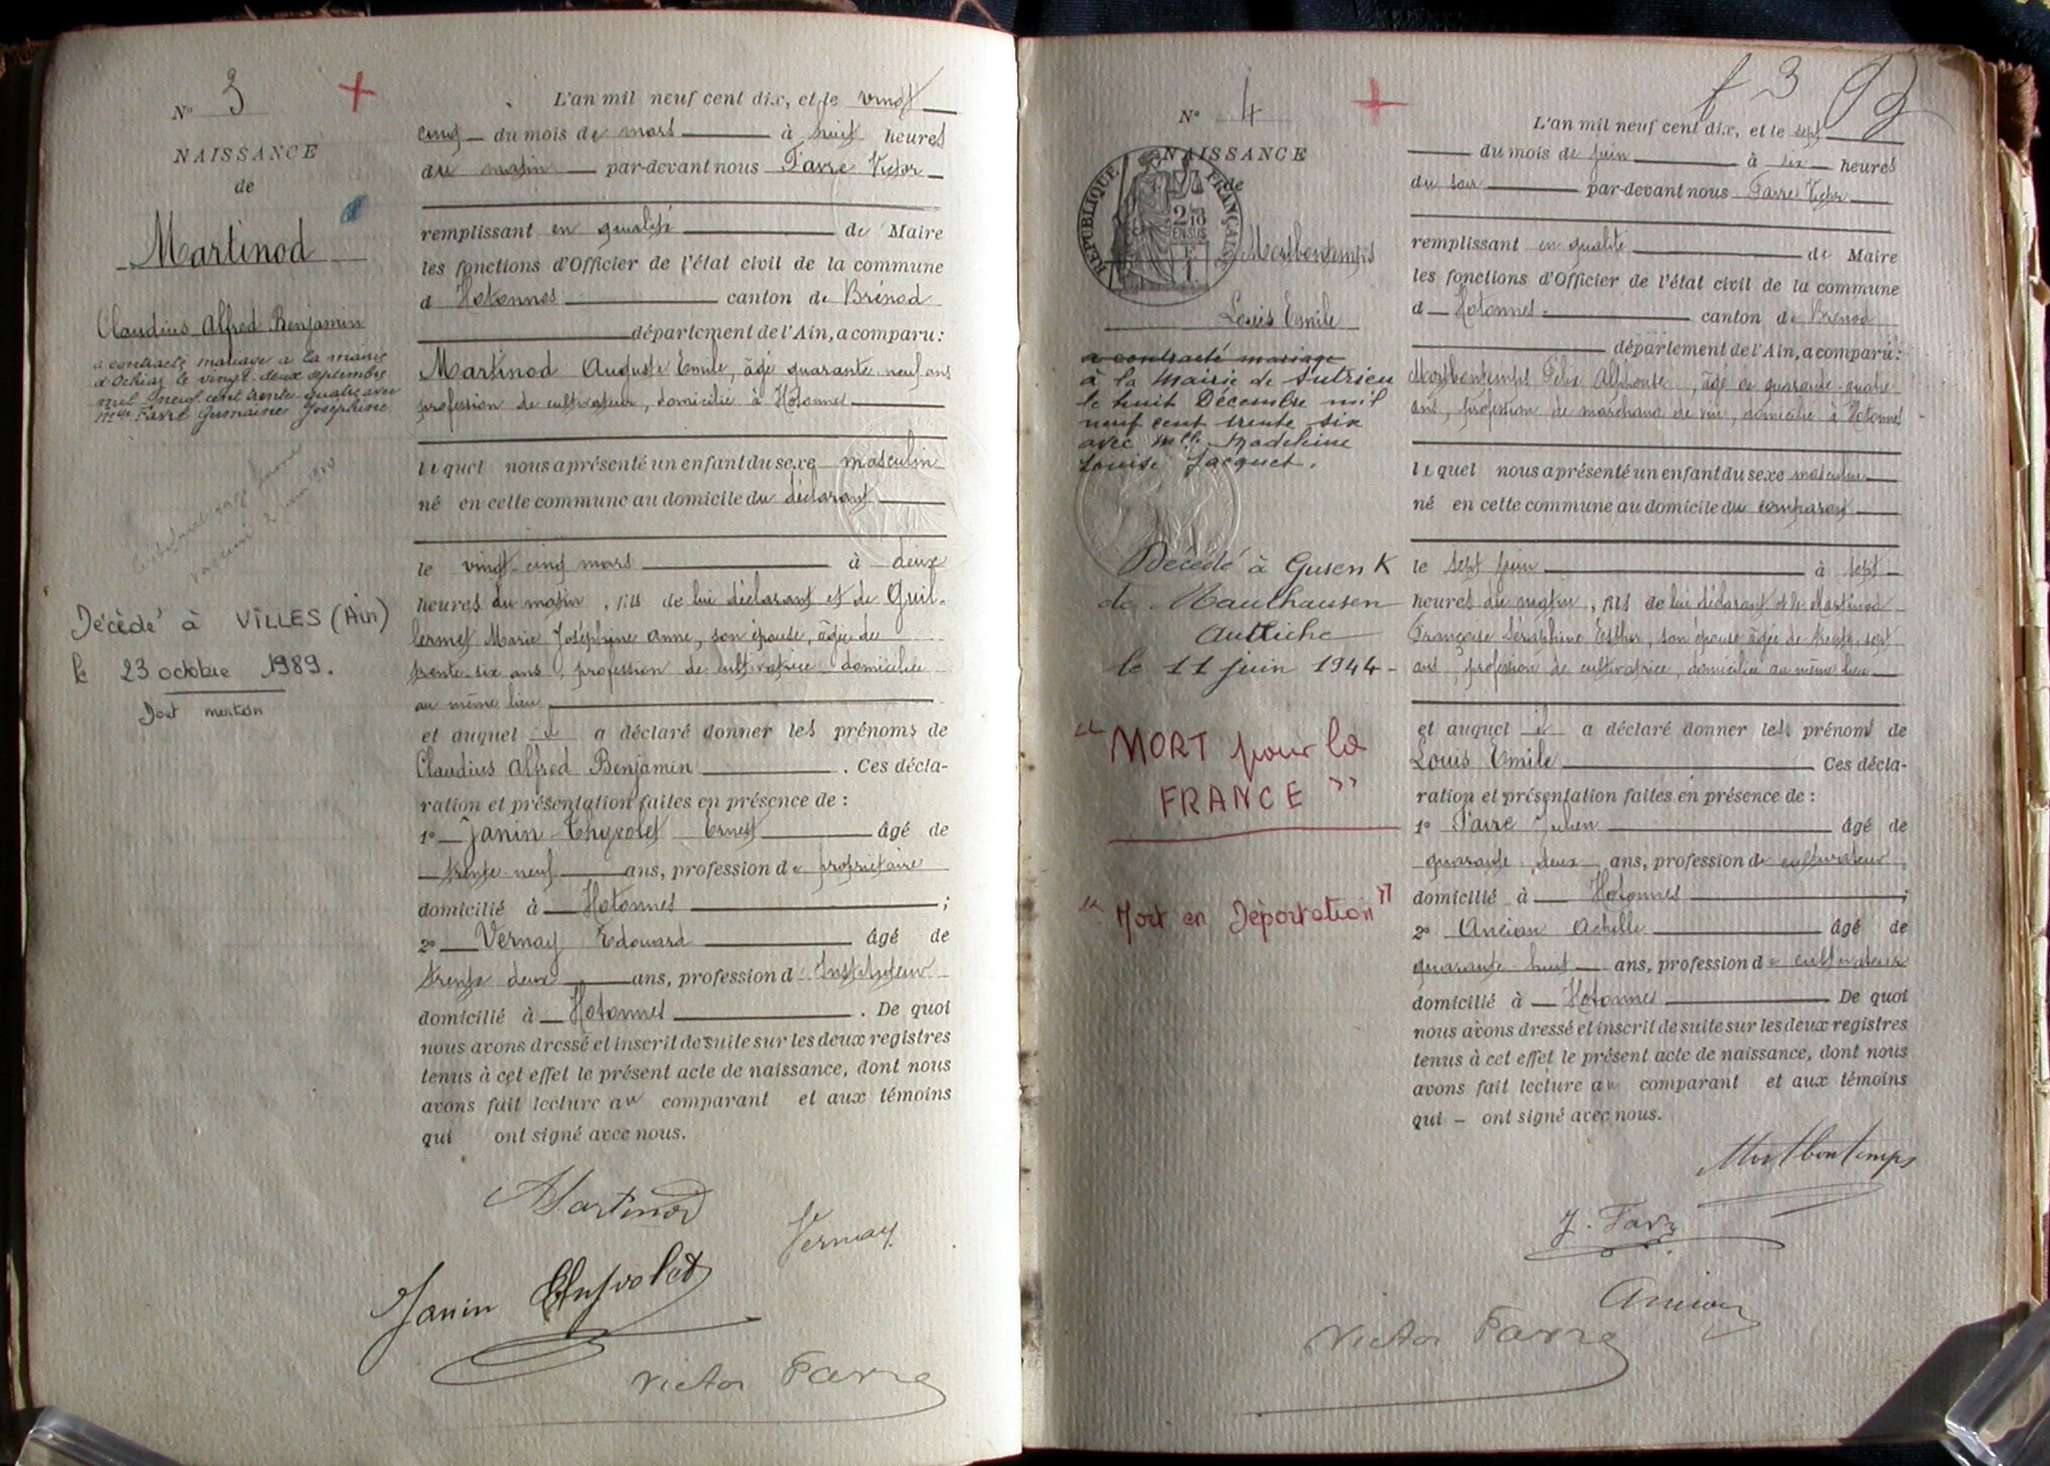 N° 3
NAISSANCE
de
Martinod
Claudius Alfred Benjamin
a contracté mariage à la mairie
d'Ochiaz le vingt-deux septembre
mil neuf cent trente-quatre avec
Melle Favre Germaine Joséphine
Décédé à VILLES (Ain)
le 23 octobre 1989.
Dont mention
L'an mil neuf cent dix, et le vingt
cinq du mois de mars à huit heures
du matin par-devant nous Favre Victor
remplissant en qualité de Maire
les fonctions d'Officier de l'état civil de la commune
d Hotonnes canton de Brénod
département de l'Ain, a comparu:
Martinod Auguste Emile, âgé quarante-neuf ans
profession de cultivateur, domicilié à Hotonnes
lequel nous a présenté un enfant du sexe masculin
né en cette commune au domicile du déclarant
le vingt-cinq mars à deux
heures du matin, fils de lui déclarant et de Guil-
lermet Marie Joséphine Anne, son épouse, âgée de
trente-six ans, profession de cultivatrice domiciliée
au même lieu
et auquel il a déclaré donner les prénoms de
Claudius Alfred Benjamin. Ces décla-
ration et présentation faites en présence de :
1° Janin-Thyvolet Ernest âgé de
trente-neuf ans, profession de propriétaire
domicilié à Hotonnes ;
2° Vernay Edouard âgé de
trente deux ans, profession d'Instituteur
domicilié à Hotonnes. De quoi
nous avons dressé et inscrit de suite sur les deux registres
tenus à cet effet le présent acte de naissance, dont nous
avons fait lecture au comparant et aux témoins
qui ont signé avec nous.
Martinod
Vernay
Janin Thyvolet
Victor Favre
f 3
N° 4
NAISSANCE
de
RÉPUBLIQUE FRANÇAISE
Mortbontemps
Louis Emile
a contracté mariage
à la Mairie de Sutrieu
le huit Décembre mil
neuf cent trente six
avec Melle Madeleine
Louise Jacquet.
Décédé à Gusen K
de Mauthausen
Autriche
le 11 juin 1944 -
" MORT pour la
FRANCE "
" Mort en Déportation "
L'an mil neuf cent dix, et le sept
du mois de juin à six heures
du soir par-devant nous Favre Victor
remplissant en qualité de Maire
les fonctions d'Officier de l'état civil de la commune
d Hotonnes canton de Brénod
département de l'Ain, a comparu:
Mortbontemps Félix Alphonse, âgé de quarante-quatre
ans, profession de marchand de vin, domicilié à Hotonnes
lequel nous a présenté un enfant du sexe masculin
né en cette commune au domicile du comparant
le sept juin à sept
heures du matin, fils de lui déclarant et de Martinod
Françoise Séraphine Esther, son épouse âgée de trente-sept
ans, profession de cultivatrice, domiciliée au même lieu
et auquel il a déclaré donner les prénoms de
Louis Emile Ces décla-
ration et présentation faites en présence de :
1° Favre Julien âgé de
quarante-deux ans, profession de cultivateur
domicilié à Hotonnes ;
2° Ancian Achille âgé de
quarante-huit ans, profession de cultivateur
domicilié à Hotonnes De quoi
nous avons dressé et inscrit de suite sur les deux registres
tenus à cet effet le présent acte de naissance, dont nous
avons fait lecture au comparant et aux témoins
qui - ont signé avec nous.
Mortbontemps
J. Favre
Ancian
Victor Favre